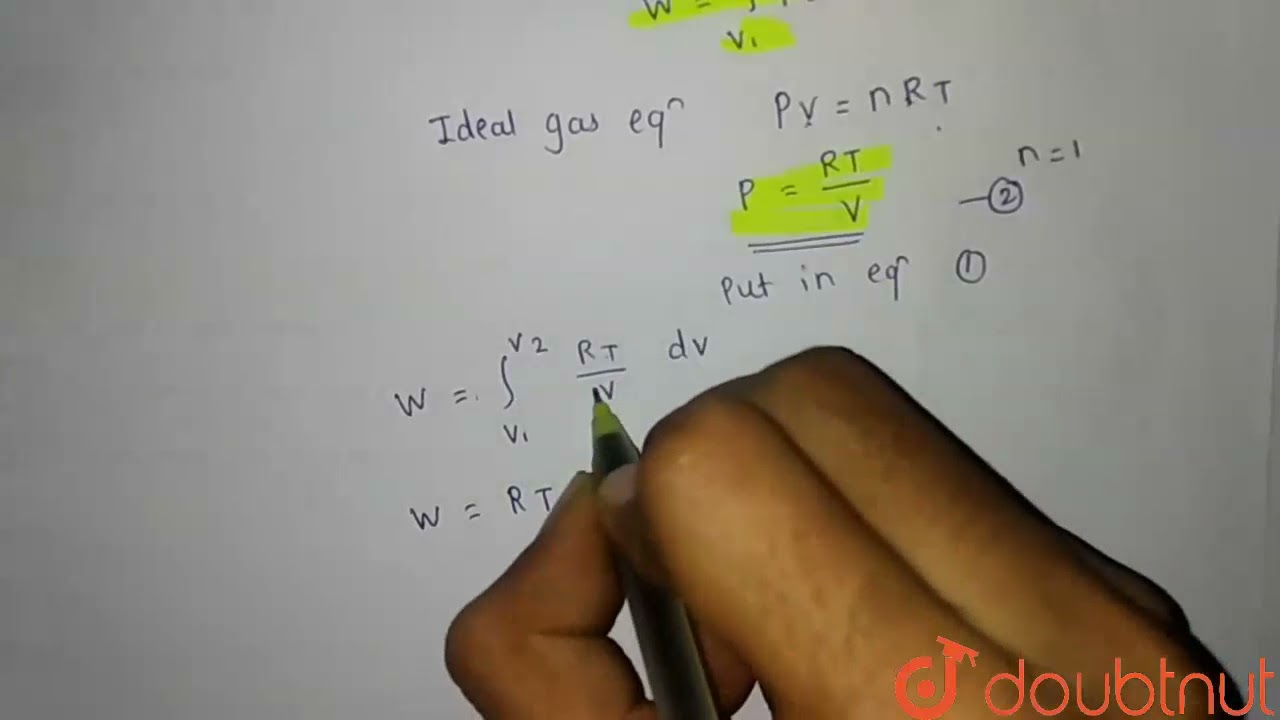 W =
V₁
Ideal gas eqⁿ PV = nRT
n = 1
P = RT/V —②
Put in eqⁿ ①
W = ∫ V₁ V₂ RT/V dv
W = RT
doubtnut